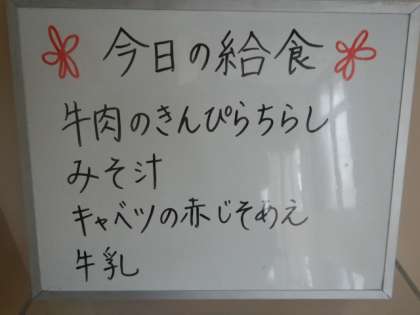 今日の給食
牛肉のきんぴらちらし
みそ汁
キャベツの赤じそあえ
牛乳